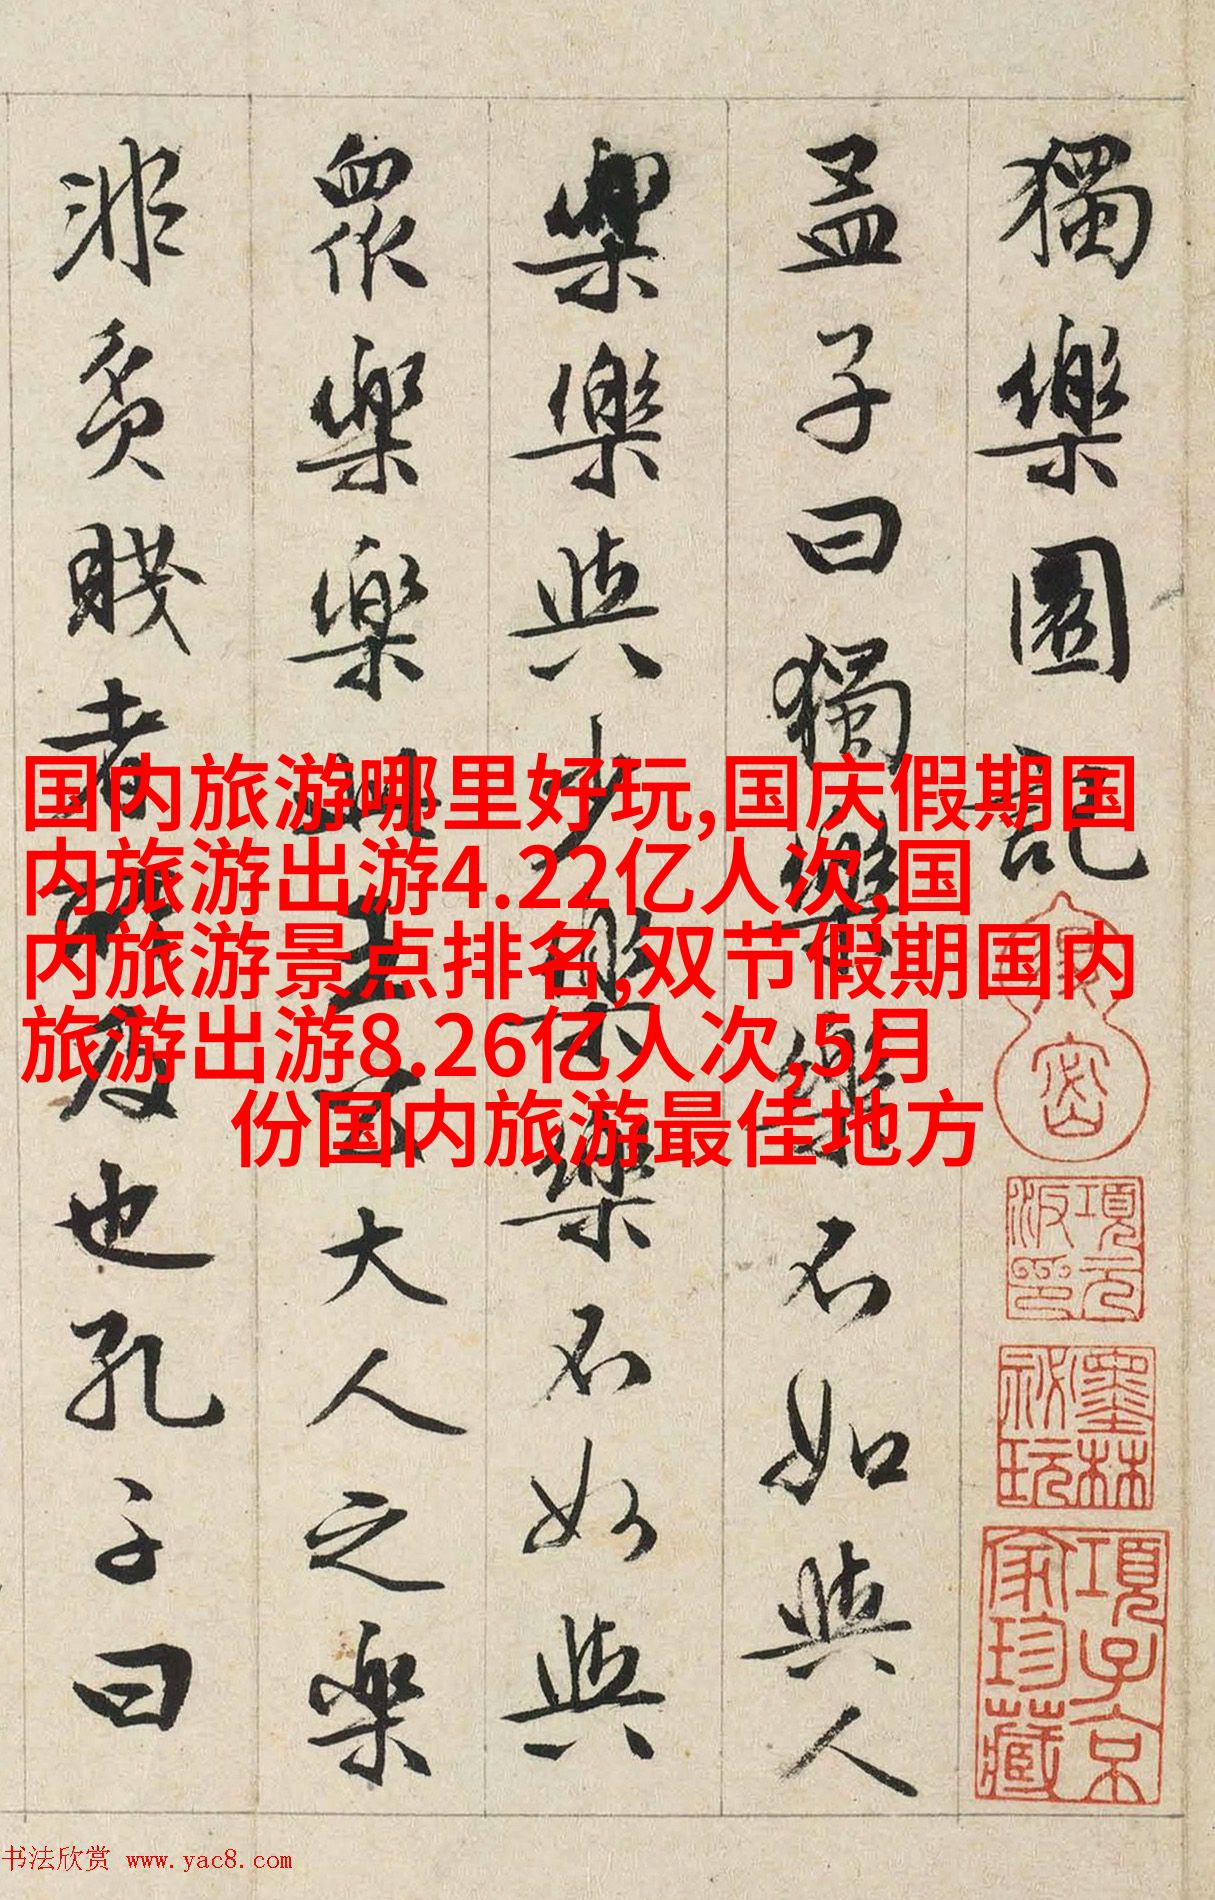 獨樂園記
孟子曰獨樂樂不如與人
樂樂與少樂樂不如與
眾樂樂此王公大人之樂
非貧賤者所及也孔子曰
国内旅游哪里好玩,国庆假期国
内旅游出游4.22亿人次,国
内旅游景点排名,双节假期国内
旅游出游8.26亿人次,5月
份国内旅游最佳地方
項元汴印
墨林祕玩
項子京家珍藏
书法欣赏 www.yac8.com